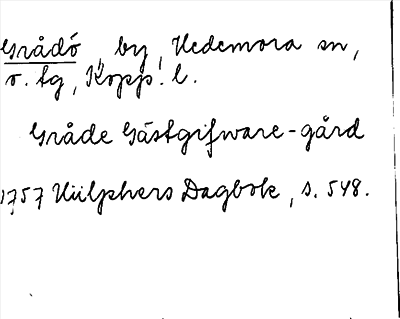 Grådö, by, Hedemora sn,
o. tg, Kopp. l.
Gråde Gästgifware-gård
1757 Hülphers Dagbok, s. 548.